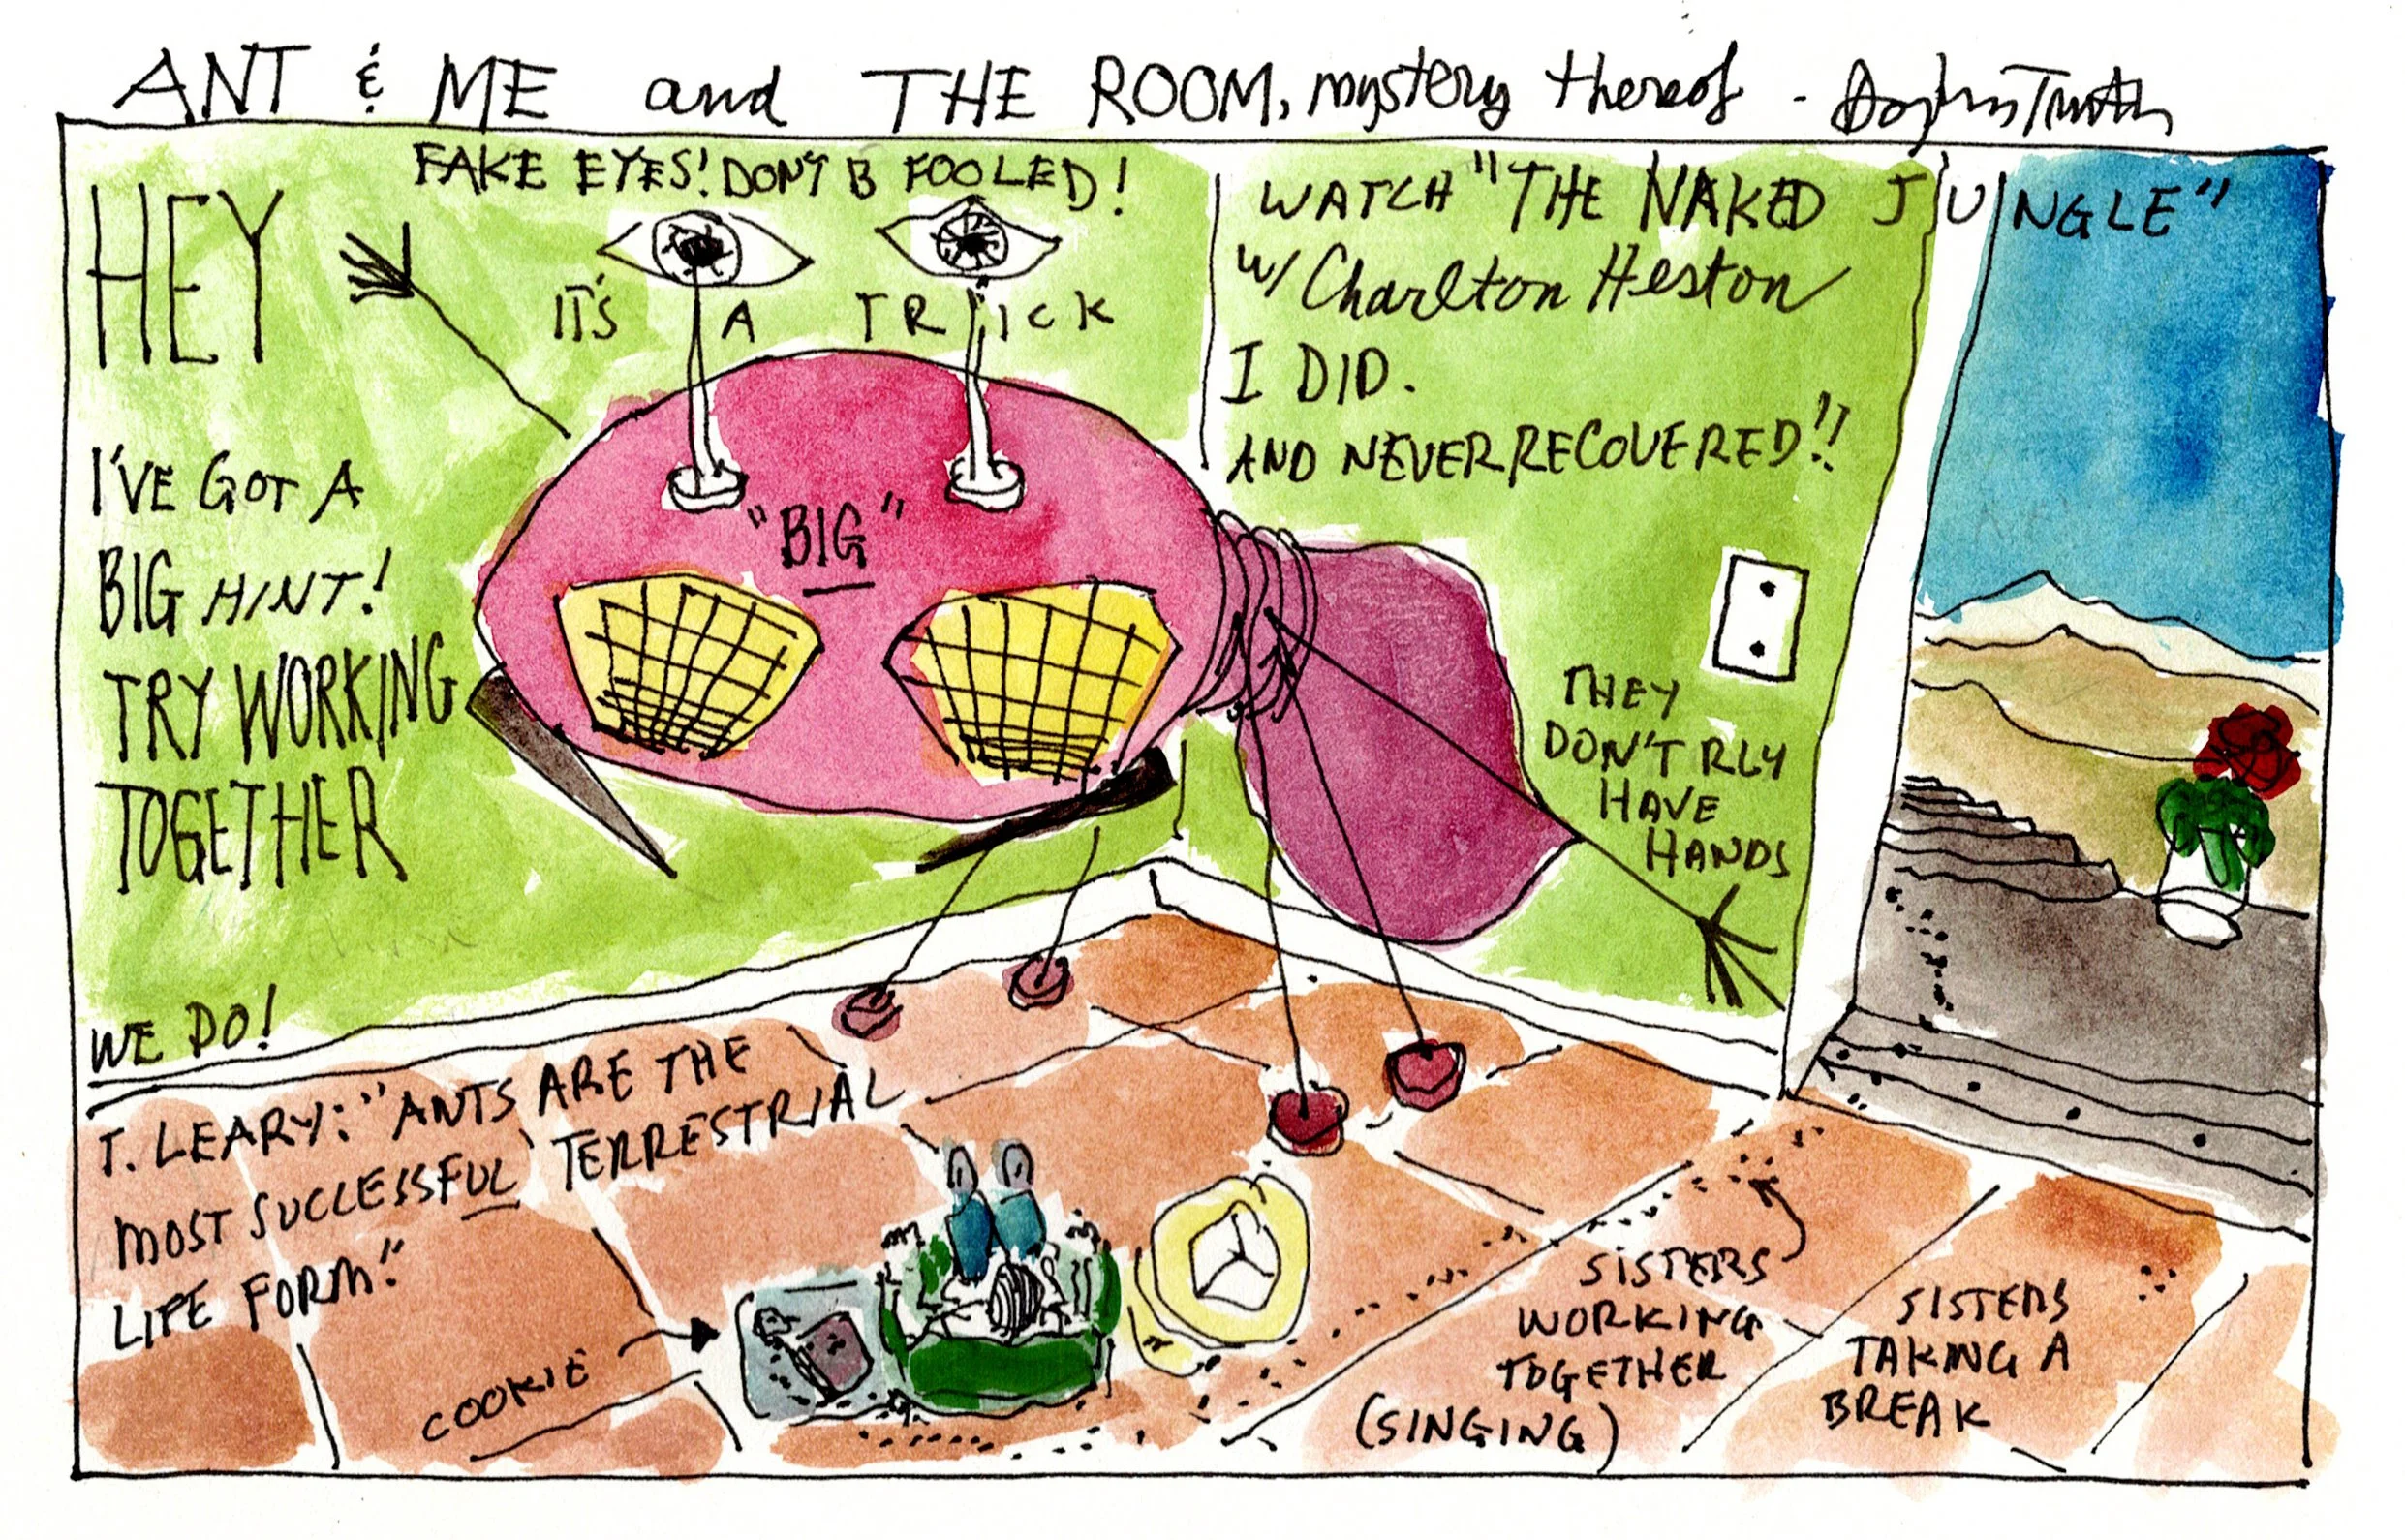 ANT & ME and THE ROOM, mystery thereof -
FAKE EYES! DON'T B FOOLED!
IT'S A TRICK
HEY
I'VE GOT A
BIG HINT!
TRY WORKING
TOGETHER
WE DO!
"BIG"
WATCH "THE NAKED JUNGLE"
w/ Charlton Heston
I DID.
AND NEVER RECOVERED!!
THEY
DON'T RLY
HAVE
HANDS
T. LEARY: "ANTS ARE THE
MOST SUCCESSFUL TERRESTRIAL
LIFE FORM."
COOKIE
SISTERS
WORKING
TOGETHER
(SINGING)
SISTERS
TAKING A
BREAK